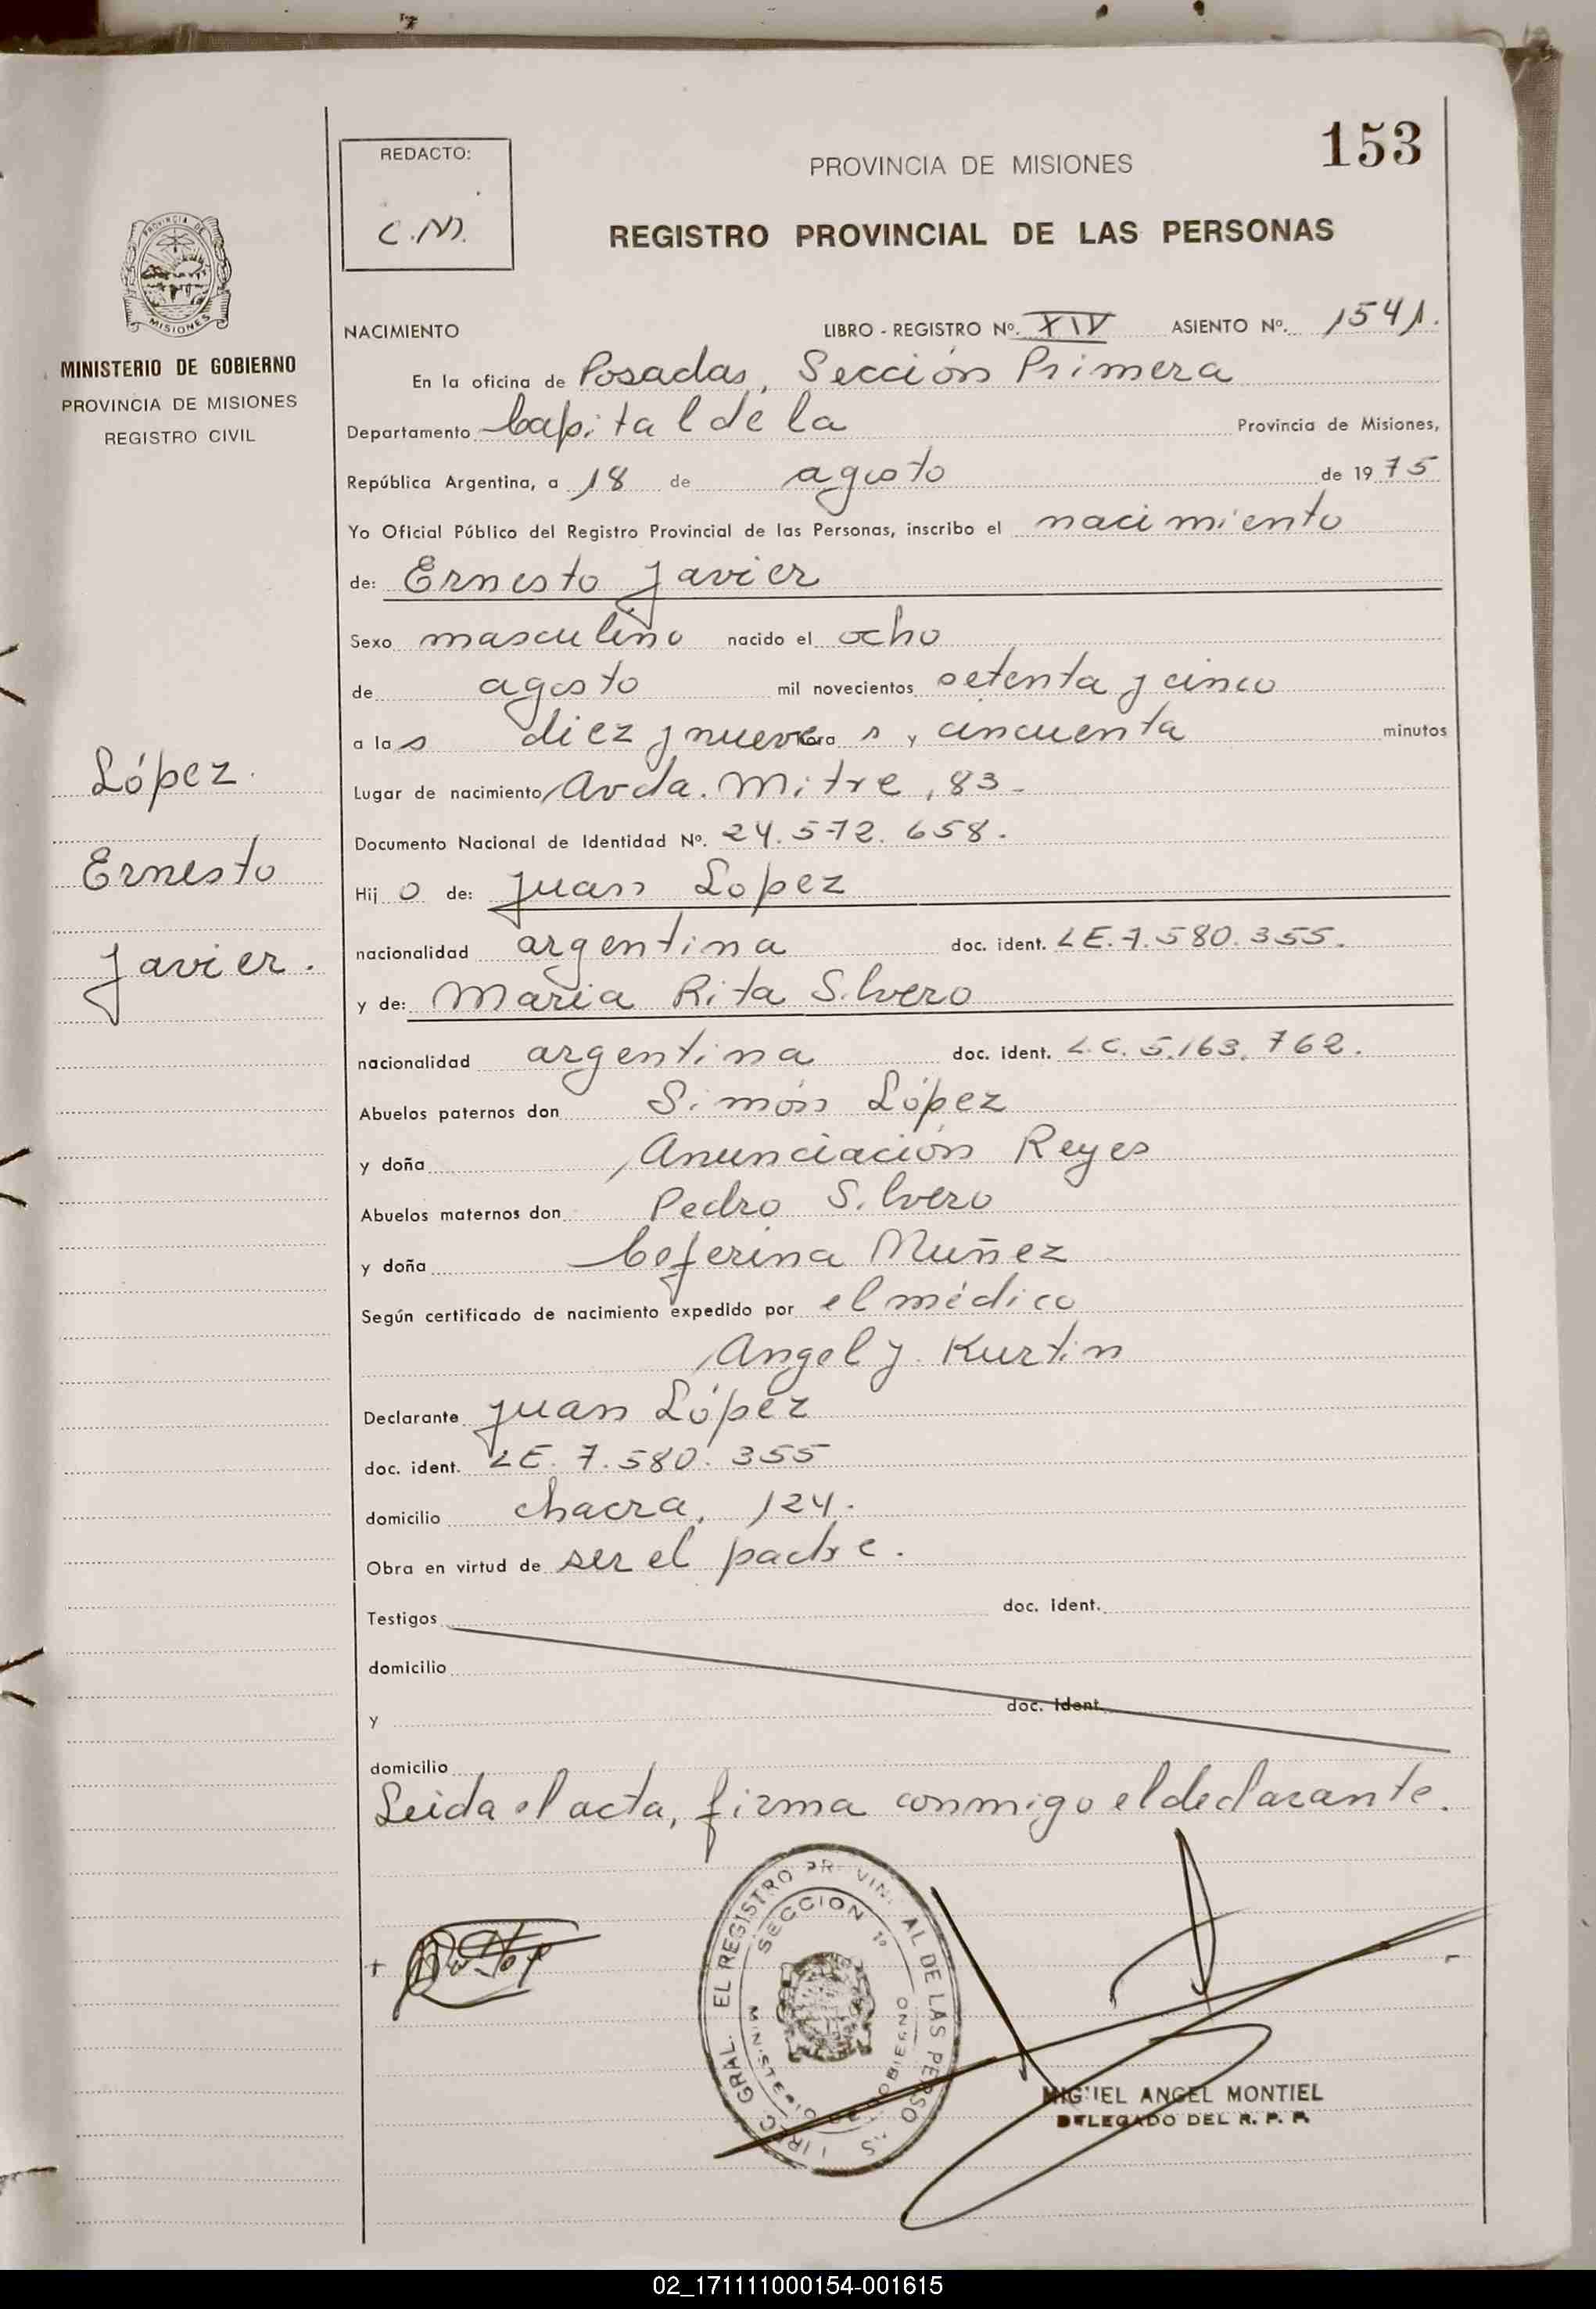 153
REDACTO:
C.N.
PROVINCIA DE MISIONES
REGISTRO PROVINCIAL DE LAS PERSONAS
PROVINCIA DE
MISIONES
MINISTERIO DE GOBIERNO
PROVINCIA DE MISIONES
REGISTRO CIVIL
López.
Ernesto
Javier.
NACIMIENTO LIBRO - REGISTRO Nº. XIV ASIENTO Nº. 1541.
En la oficina de Posadas, Sección Primera
Departamento Capital de la Provincia de Misiones,
República Argentina, a 18 de agosto de 1975
Yo Oficial Público del Registro Provincial de las Personas, inscribo el nacimiento
de: Ernesto Javier
Sexo masculino nacido el ocho
de agosto mil novecientos setenta y cinco
a las diez y nueve hora s y cincuenta minutos
Lugar de nacimiento Avda. Mitre, 83-
Documento Nacional de Identidad Nº. 24.572.658.
Hij o de: Juan Lopez
nacionalidad argentina doc. ident. LE.7.580.355.
y de: Maria Rita Silvero
nacionalidad argentina doc. ident. L.C. 5.163.762.
Abuelos paternos don Simón López
y doña Anunciación Reyes
Abuelos maternos don Pedro Silvero
y doña Ceferina Muñez
Según certificado de nacimiento expedido por el médico
Angel J. Kurtin
Declarante Juan López
doc. ident. LE. 7.580.355
domicilio chacra, 124.
Obra en virtud de ser el padre.
Testigos doc. ident.
domicilio
y doc. ident.
domicilio
Leida el acta, firma conmigo el declarante.
EL REGISTRO PR VIN AL DE LAS PERSO S
GRAL.
SECCION 1º
MINISTERIO DE GOBIERNO
MIGUEL ANGEL MONTIEL
DELEGADO DEL R. P. P.
02_171111000154-001615